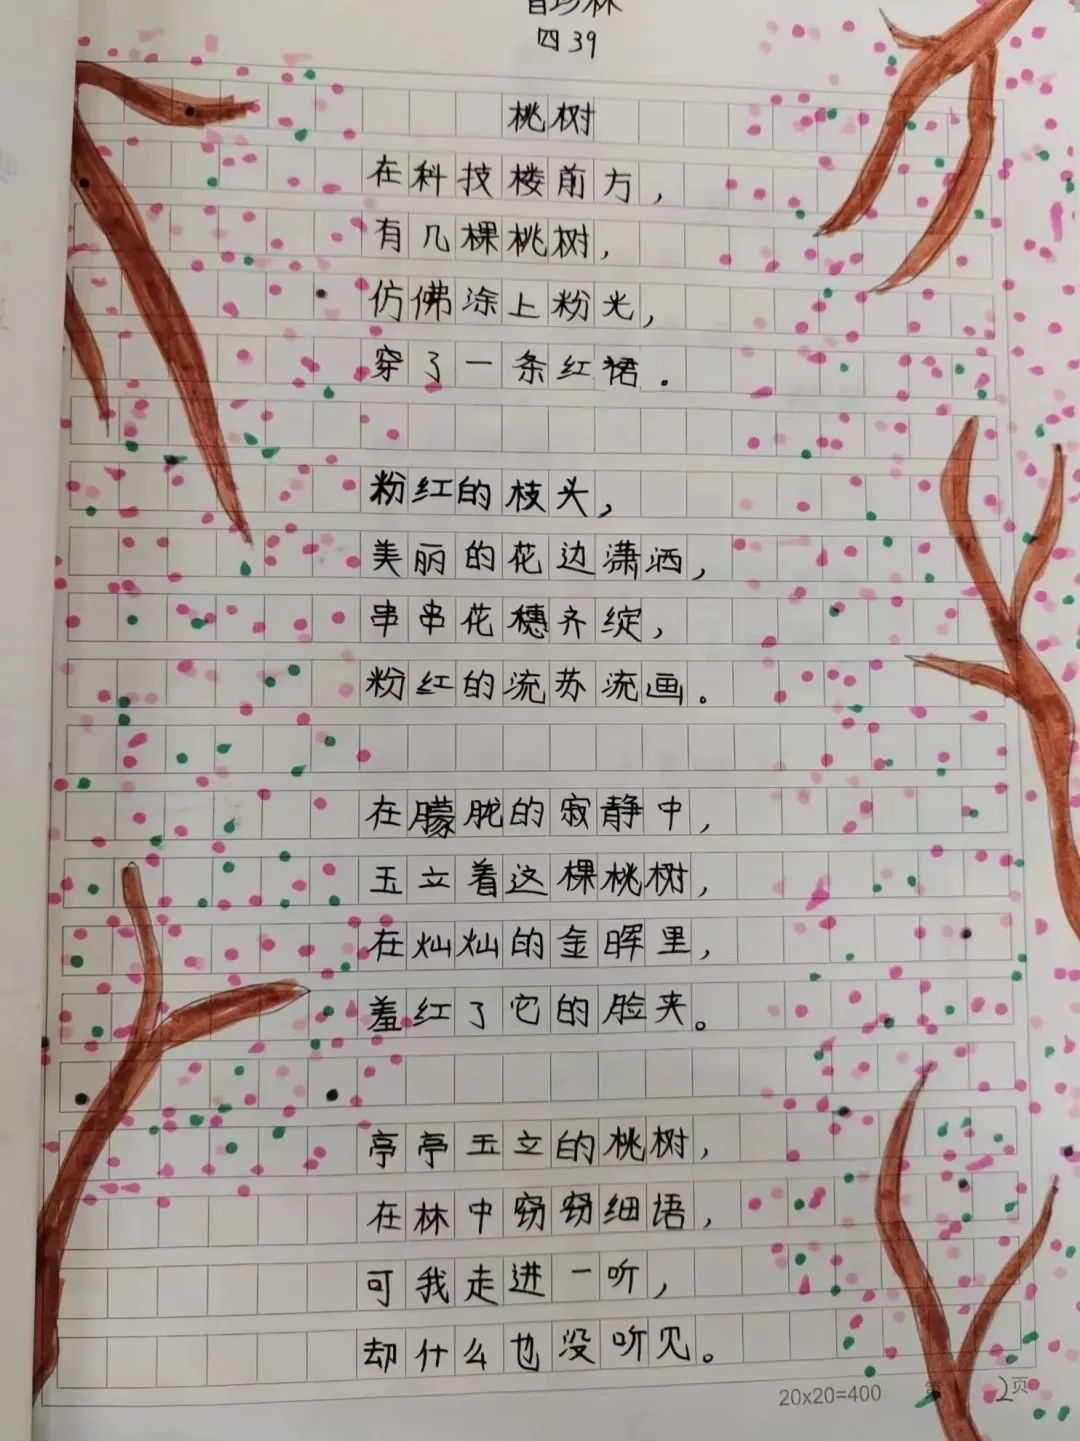 四39
桃树
在科技楼前方，
有几棵桃树，
仿佛涂上粉光，
穿了一条红裙。
粉红的枝头，
美丽的花边潇洒，
串串花穗齐绽，
粉红的流苏流画。
在朦胧的寂静中，
玉立着这棵桃树，
在灿灿的金晖里，
羞红了它的脸夹。
亭亭玉立的桃树，
在林中窃窃细语，
可我走进一听，
却什么也没听见。
20x20=400 第2页